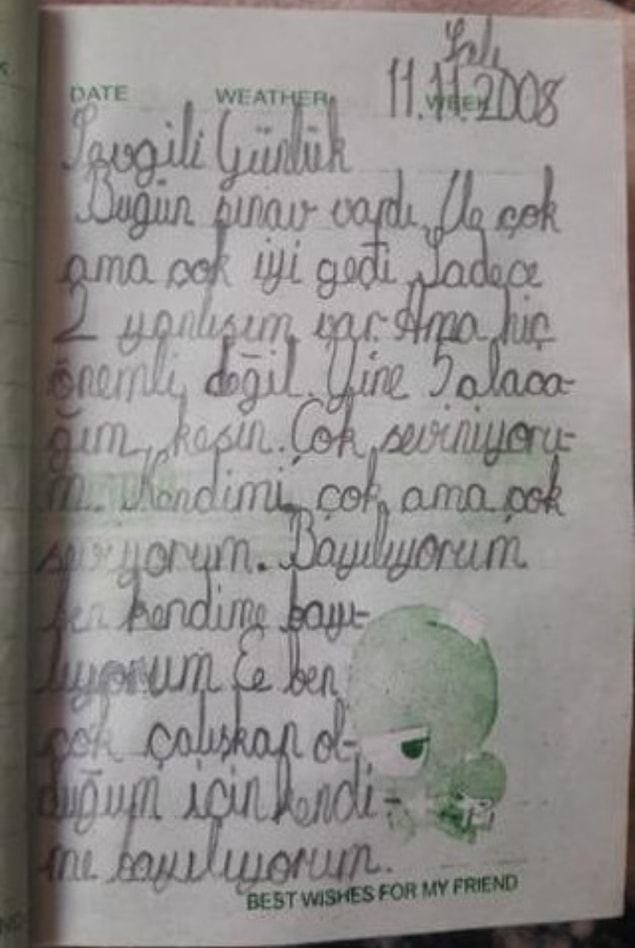 Salı
DATE WEATHER WEEK 11.11.2008
Sevgili Günlük
Bugün sınav vardı. Ve çok
ama çok iyi geçti. Sadece
2 yanlışım var. Ama hiç
önemli değil. Yine 5 alaca-
ğım, kesin. Çok seviniyoru-
m. Kendimi çok ama çok
seviyorum. Bayılıyorum
ben kendime bayı-
lıyorum Ee ben
çok çalışkan ol-
duğum için kendi-
me bayılıyorum.
BEST WISHES FOR MY FRIEND